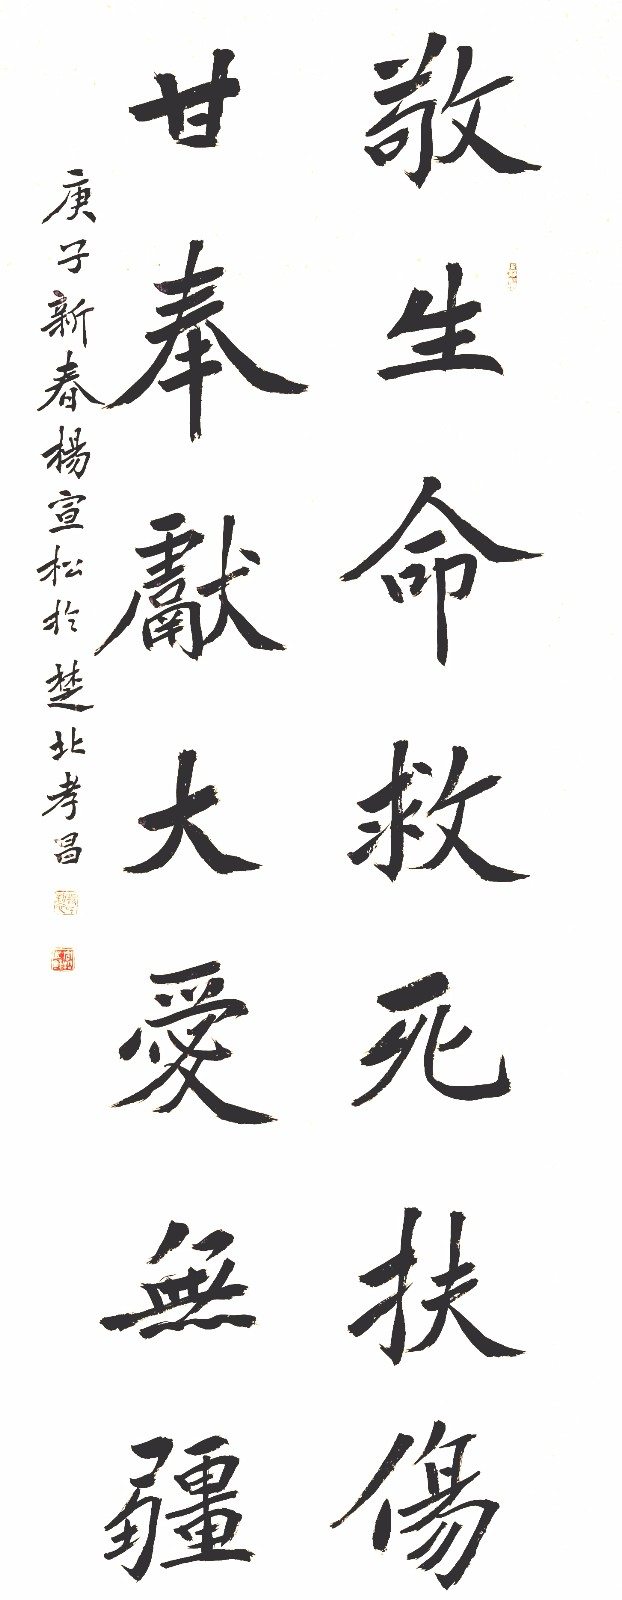 敬生命救死扶傷
甘奉獻大愛無疆
庚子新春楊宣松於楚北孝昌